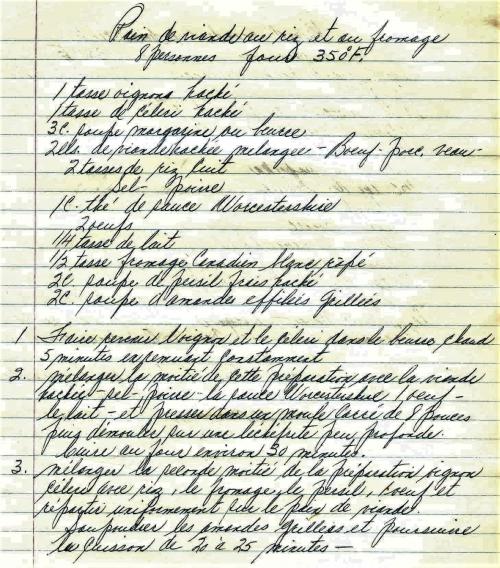 Pain de viande au riz et au fromage
8 personnes four 350°F.
1 tasse oignons haché
1 tasse de céleri haché
3 C. soupe margarine ou beurre
2 lbs. de viande hachée mélangée - Boeuf - porc, veau -
2 tasses de riz cuit
Sel - Poivre
1 C. thé de sauce Worcestershire
2 oeufs
1/4 tasse de lait
1/2 tasse fromage Canadien blanc rapé
2 C. soupe de persil frais haché
2 C. soupe d'amandes effilées grillées
1 Faire revenir l'oignon et le céleri dans le beurre chaud
5 minutes en remuant constamment
2. mélanger la moitié de cette préparation avec la viande
hachée - sel - poivre - la sauce Worcestershire 1 oeuf -
le lait - et presser dans un moule carré de 8 pouces
puis démouler sur une lèchefrite peu profonde.
Cuire au four environ 30 minutes.
3. mélanger la seconde moitié de la préparation oignon
céleri avec riz, le fromage, le persil, 1 oeuf et
répartir uniformément sur le pain de viande.
Saupoudrer les amandes grillées et poursuivre
la cuisson de 20 à 25 minutes -